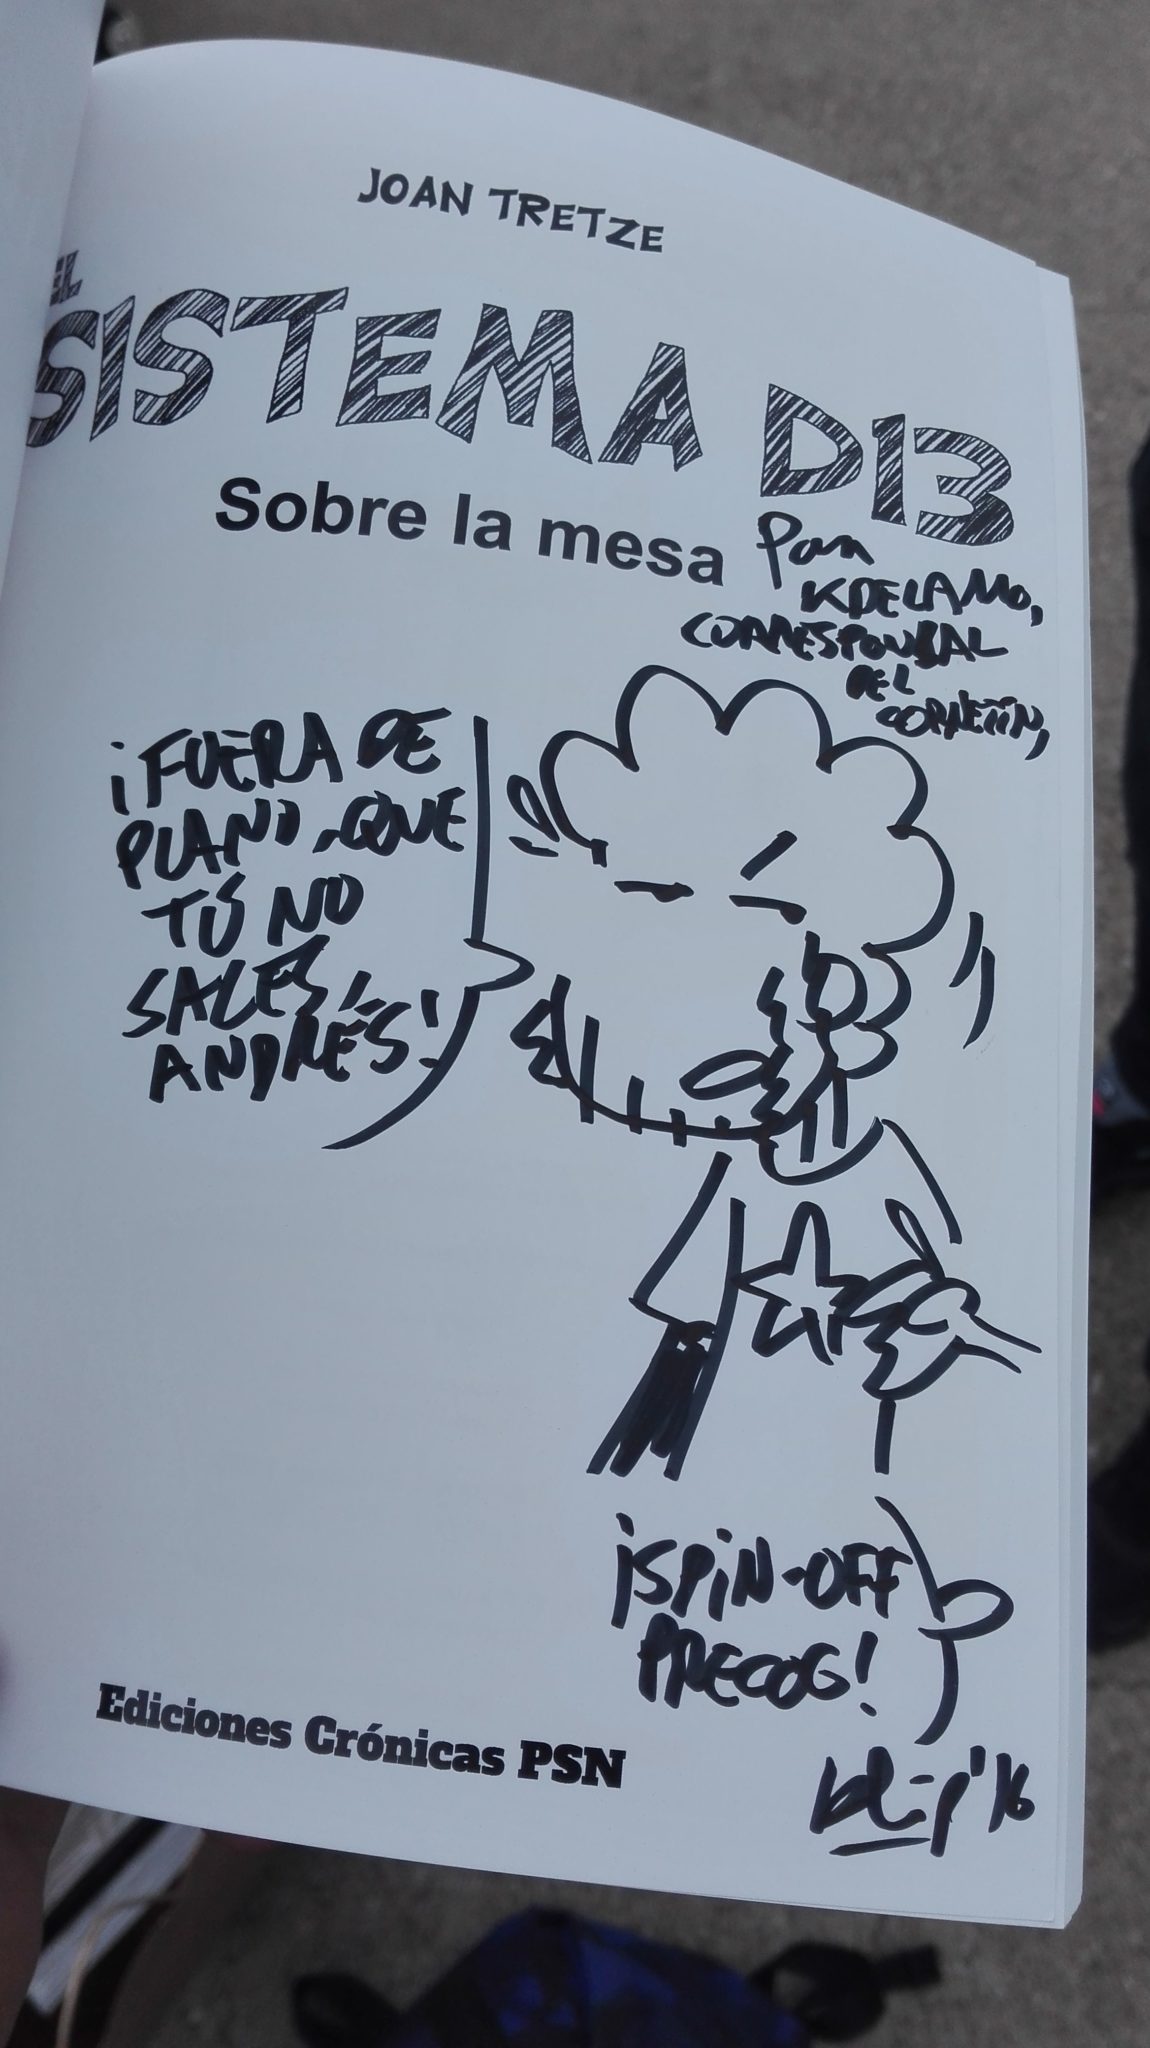 JOAN TRETZE
EL
SISTEMA D13
Sobre la mesa
Para
KDELAMO,
CORRESPONSAL
DEL
CORNETÍN,
¡FUERA DE
PLANO, QUE
TÚ NO
SALES,
ANDRÉS!
¡SPIN-OFF
PRECOG!
Ediciones Crónicas PSN
'16